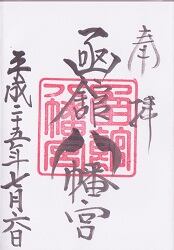 奉拝
函館八幡宮
平成二十五年七月六日
函館
八幡宮